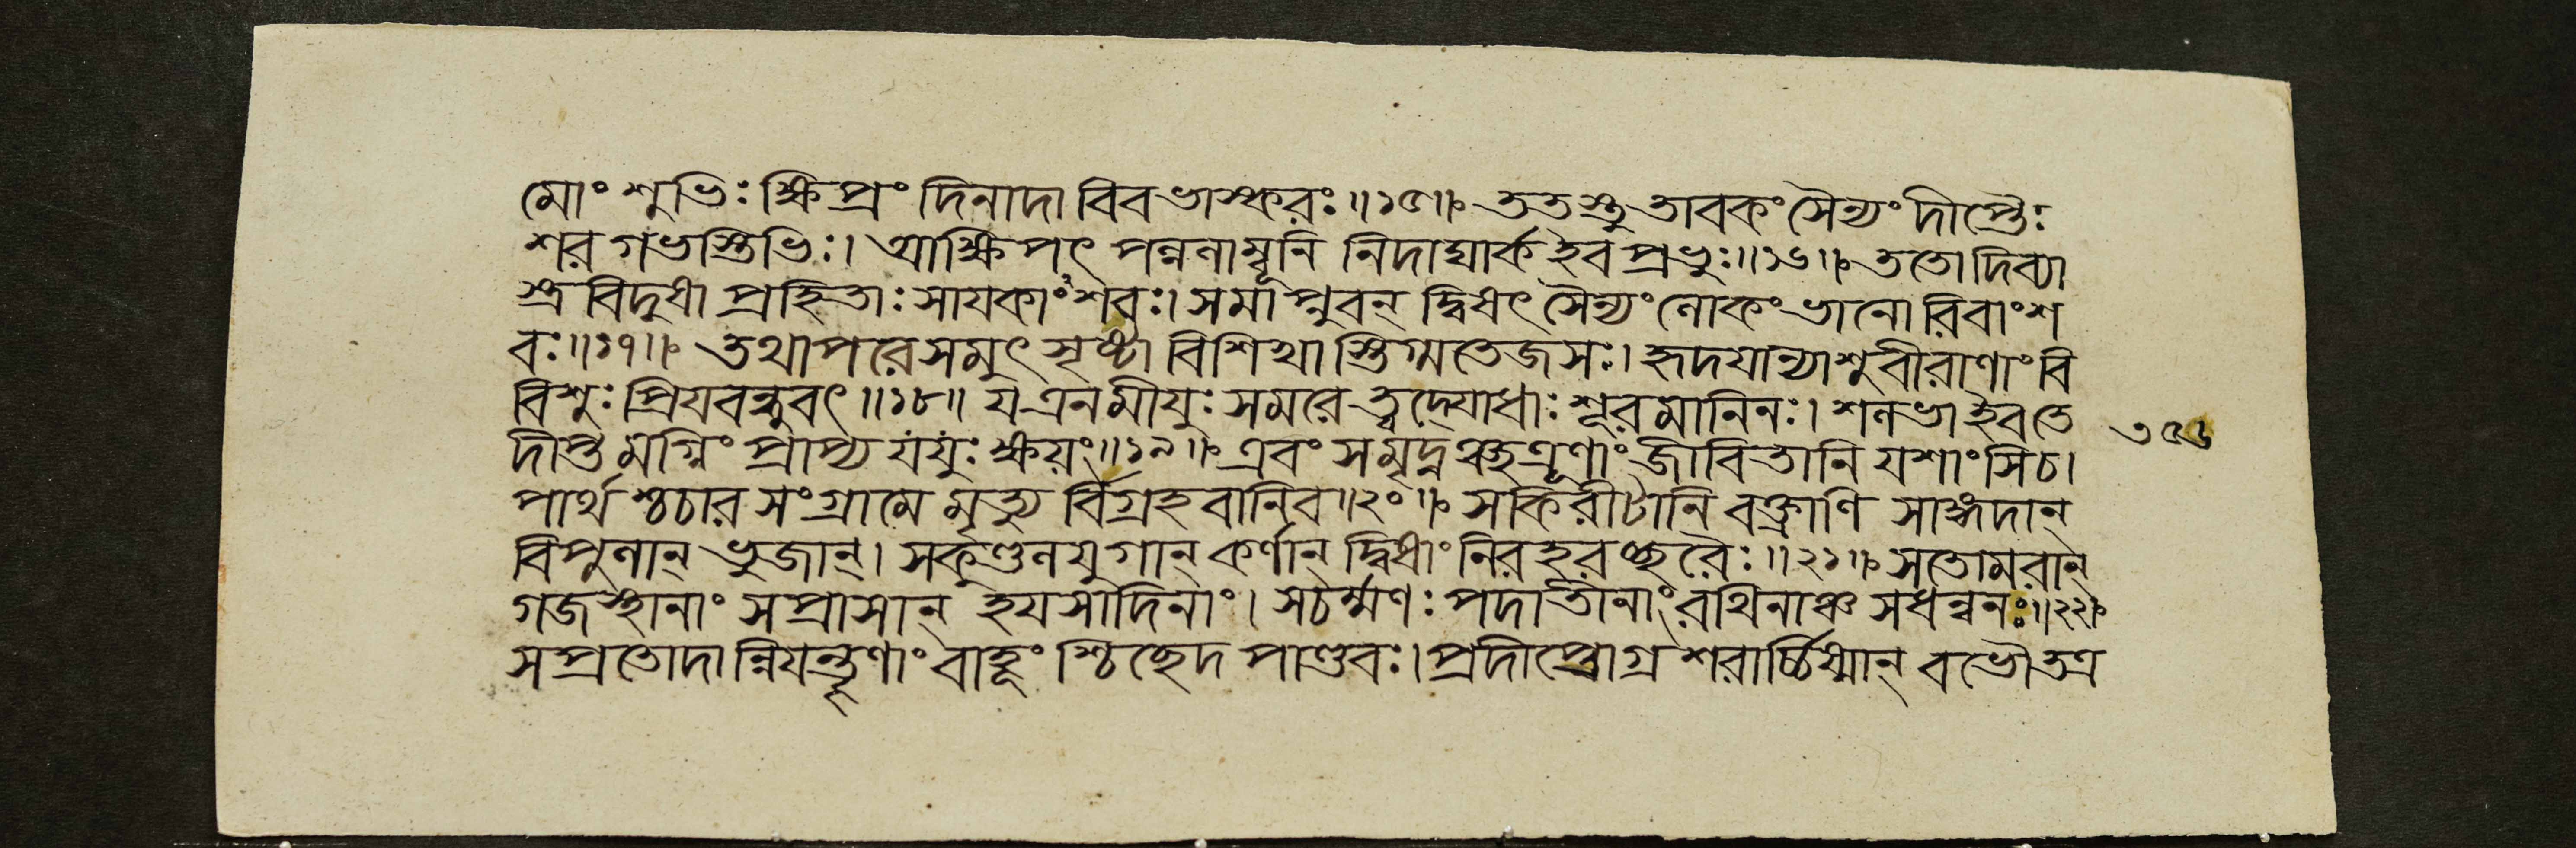 মোংশুভিঃ ক্ষিপ্রং দিনাদাবিব ভাস্করঃ॥১৫॥ ততস্তু তাবকং সৈন্যং দীপ্তৈঃ
শরগভস্তিভিঃ। আক্ষিপৎ পল্বলাম্বূনি নিদাঘার্ক ইব প্রভুঃ॥১৬॥ ততো দিব্যা
স্ত্রবিদুষা প্রহিতাঃ সায়কাংশবঃ। সমাপ্লুবন্ দ্বিষৎ সৈন্যং লোকং ভানোরিবাংশ
বঃ॥১৭॥ তথাপরে সমুৎসৃষ্টা বিশিখাস্তিগ্মতেজসঃ। হৃদয়ান্যাশু বীরাণাং বি
বিশুঃ প্রিয়বন্ধুবৎ॥১৮॥ য এনমীয়ুঃ সমরে ত্বদ্যোধাঃ শূরমানিনঃ। শলভা ইব তে
দীপ্তমগ্নিং প্রাপ্য যযুঃ ক্ষয়ং॥১৯॥ এবং স মৃদ্নঞ্ছত্রূণাং জীবিতানি যশাংসি চ।
৩৫৬
পার্থশ্চচার সংগ্রামে মৃত্যুর্বিগ্রহবানিব॥২০॥ সকিরীটানি বক্ত্রাণি সাঙ্গদান্
বিপুলান্ ভুজান্। সকুণ্ডলযুগান্ কর্ণান্ দ্বিষাং নিরহরচ্ছরৈঃ॥২১॥ সতোমরান্
গজস্থানাং সপ্রাসান্ হয়সাদিনাং। সচর্ম্মণঃ পদাতীনাং রথিনাঞ্চ সধন্বনঃ॥২২॥
সপ্রতোদান্নিয়ন্তৄণাং বাহূংশ্চিচ্ছেদ পাণ্ডবঃ। প্রদীপ্তোগ্রশরার্চ্চিষ্মান্ বভৌ তত্র